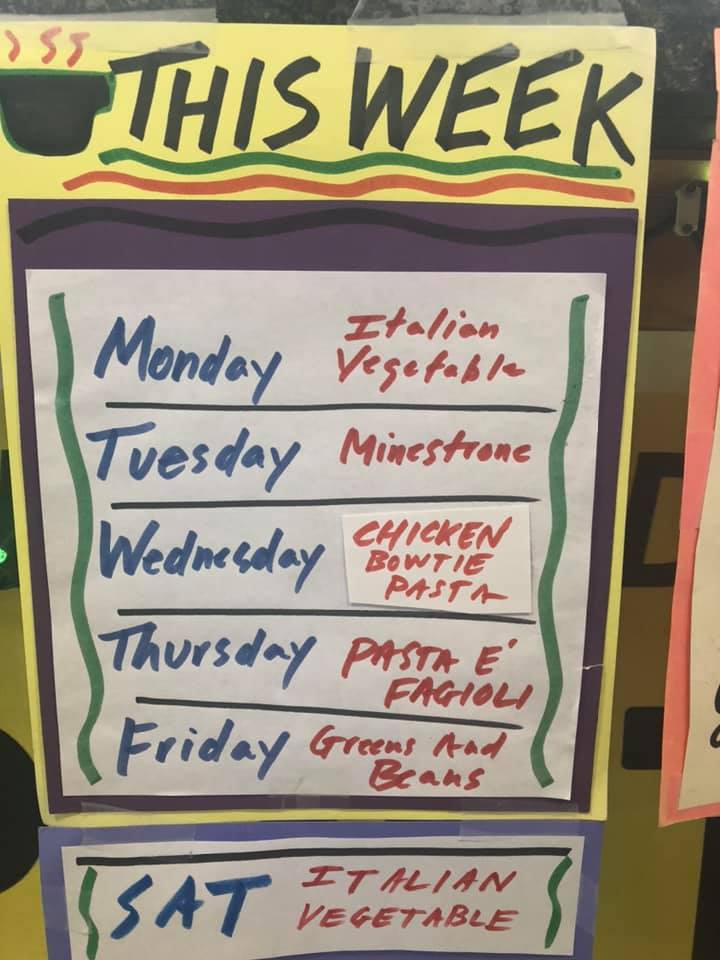 THIS WEEK
Monday Italian
Vegetable
Tuesday Minestrone
Wednesday CHICKEN
BOWTIE
PASTA
Thursday PASTA E'
FAGIOLI
Friday Greens And
Beans
SAT ITALIAN
VEGETABLE